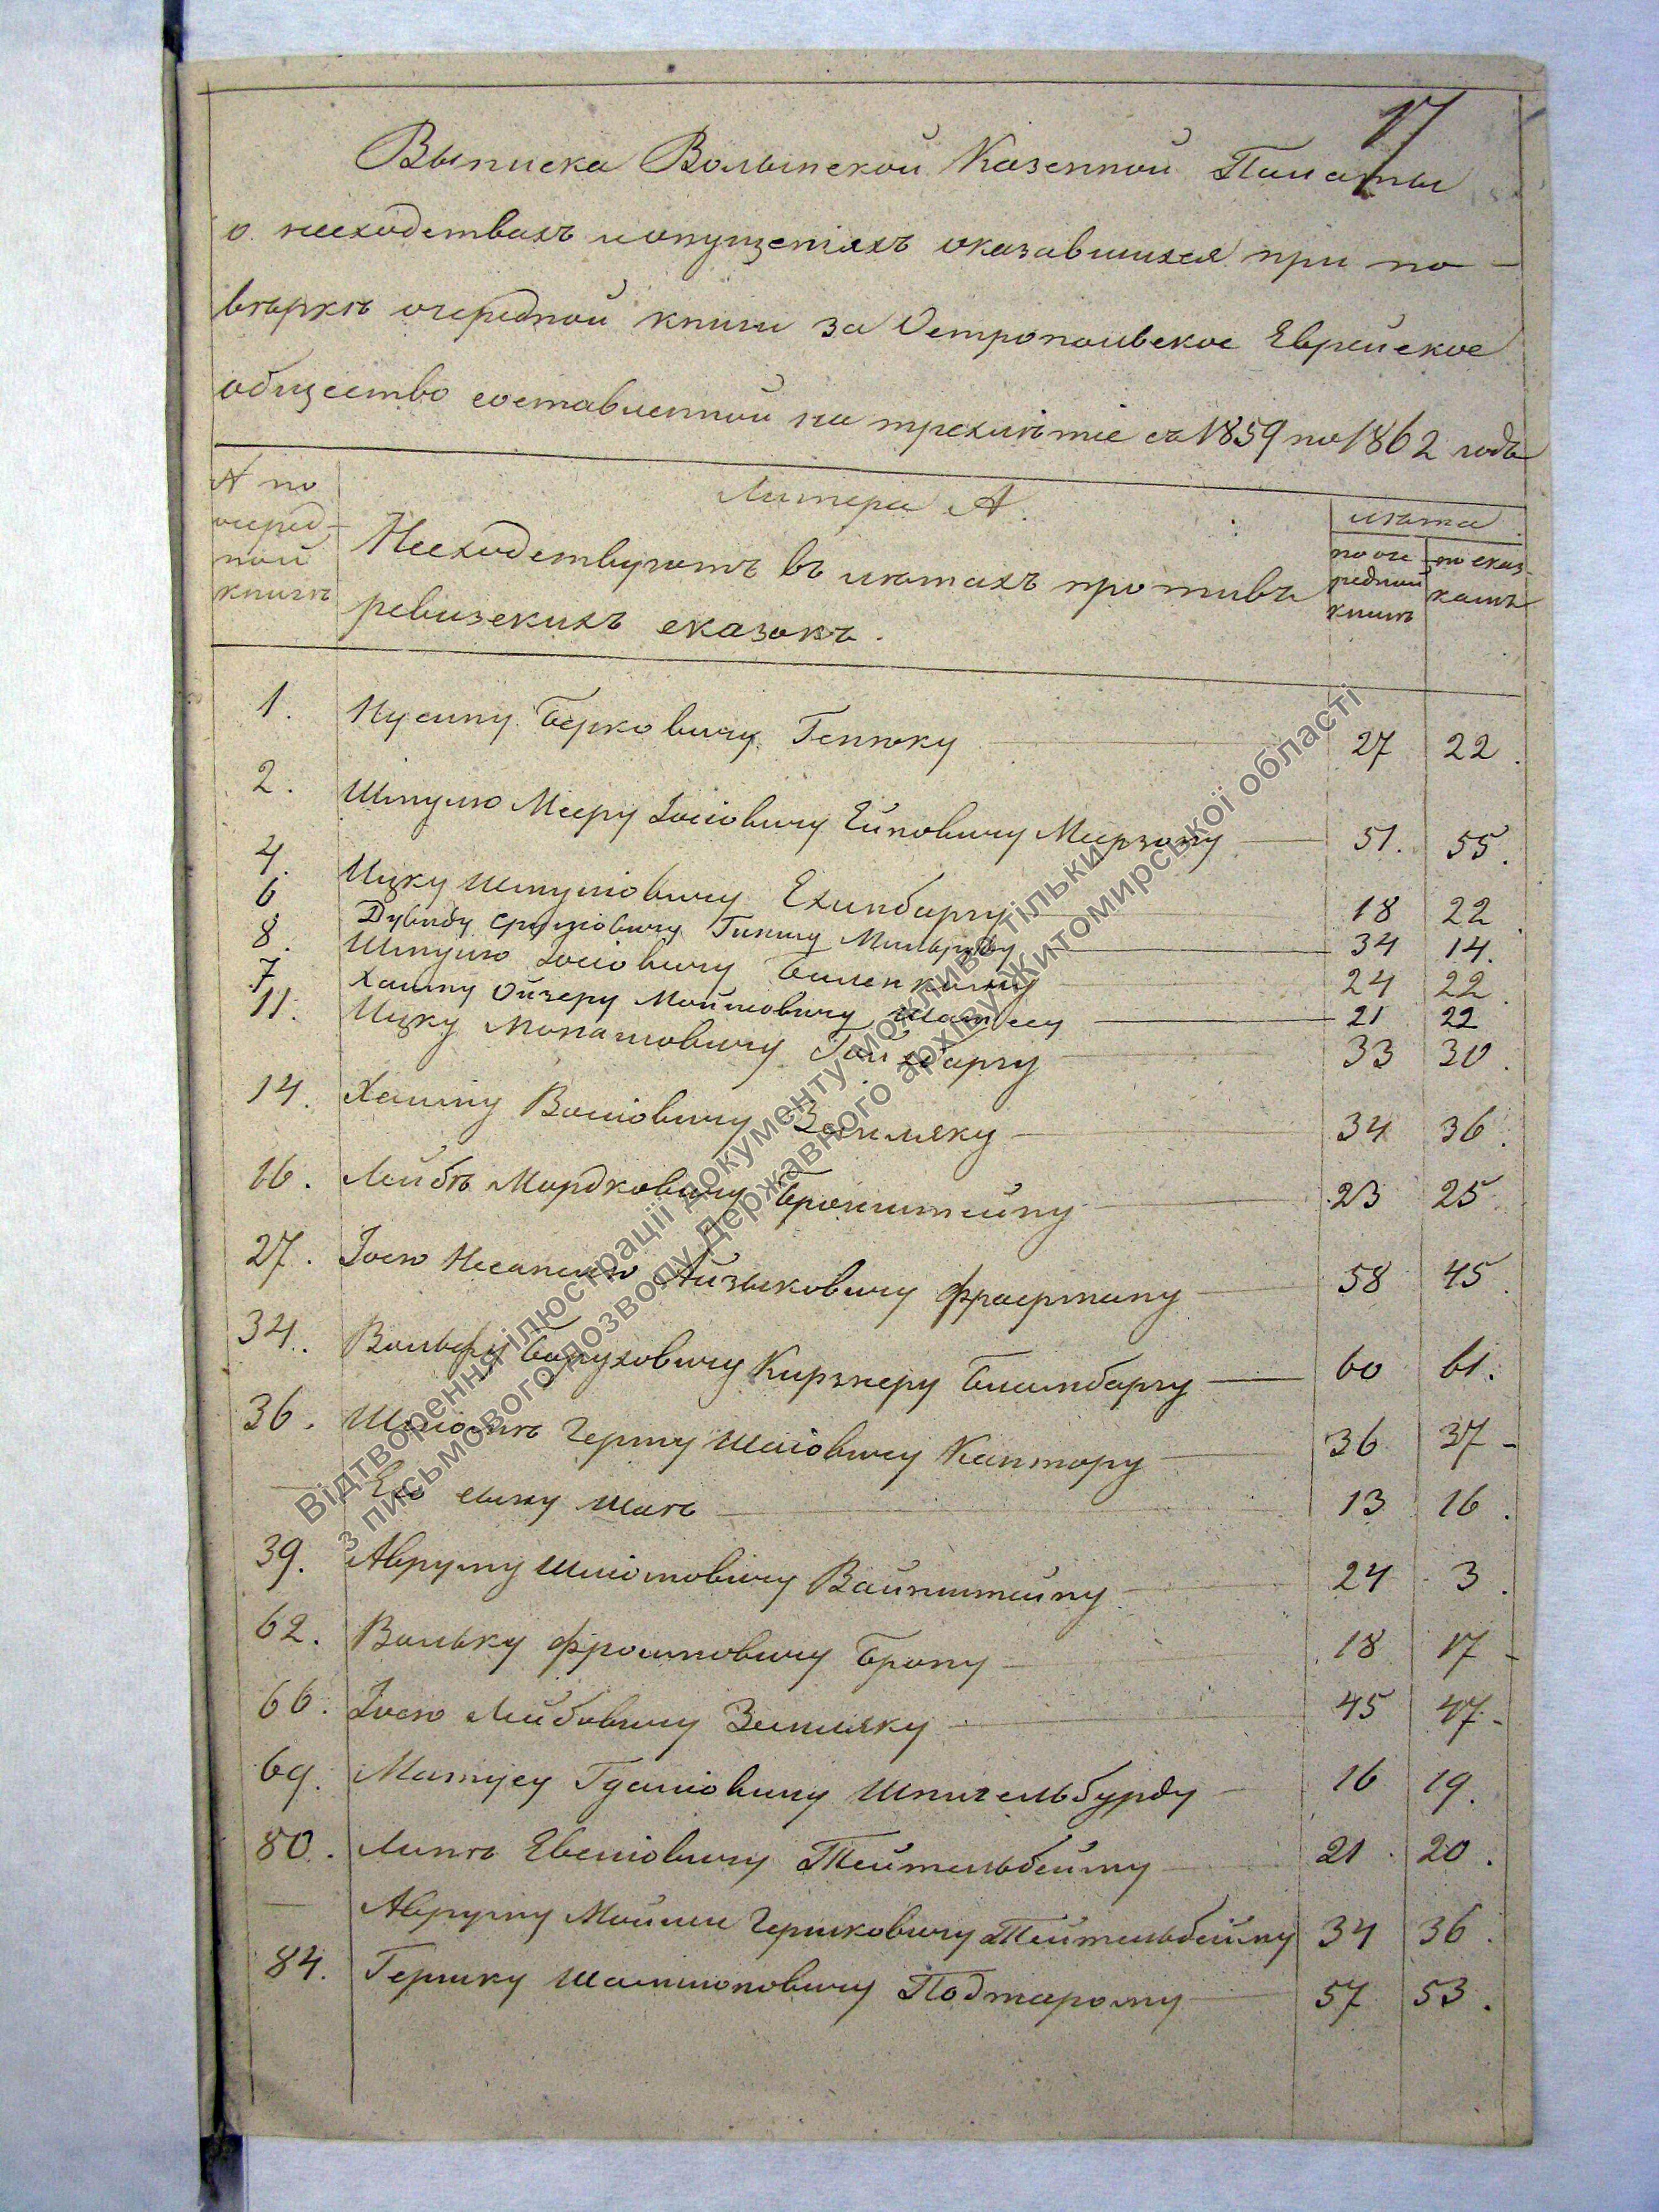 17
Выписка Волынской Казенной Палаты
о несходствахъ и опущеніяхъ оказавшихся при по-
вѣркѣ очередной книги за Остропольское Еврейское
общество составленной на трехлѣтіе съ 1859 по 1862 годъ
№ по очеред-ной книгѣ
Литера А.
Несходствуютъ въ лѣтахъ противъ
ревизскихъ сказокъ.
лѣта
по оче редной книгѣ
по сказ-камъ
1. Нусину Берковичу Геннюку 27 22.
2. Шмулю Мееру Іосіовичу Меерзону 51. 55.
4. Ицку Шмуліовичу Ехинбаргу 18 22
6 Дувиду Сруліовичу 34 14.
8. Шмулю Іосіовичу 24 22.
7. Хаиму Ойзеру Мойшовичу 21 22
11. Ицку Монашовичу 33 30.
14. Хаиму Волiовичу Земляку 34 36.
16. Лейбѣ Мордковичу Бронштейну 23 25
27. Іосю Айзыковичу Фраерману 58 45.
34. Вольфу Боруховичу Кирзнеру Бламбаргу 60 61.
36. Шліомѣ Гершу Шаіовичу Кантору 36 37-
— Его сыну Шаѣ 13 16.
39. Авруму Шліомовичу Вайнштейну 24 3.
62. Вольку Фроимовичу Брону 18 17-
66. Іосю Лейбовичу Земляку 45 47-
69. Матусу Гдаліовичу Шпигельбурду 16 19.
80. Липѣ Евеліовичу Тейтельбейму 21. 20.
— Авруму Мойше Гершковичу Тейтельбейму 34 36.
84. Гершку Шамшоновичу Подтарому 57 53.
Відтворення ілюстрації документу можливе тільки
з письмового дозволу Державного архіву Житомирської області